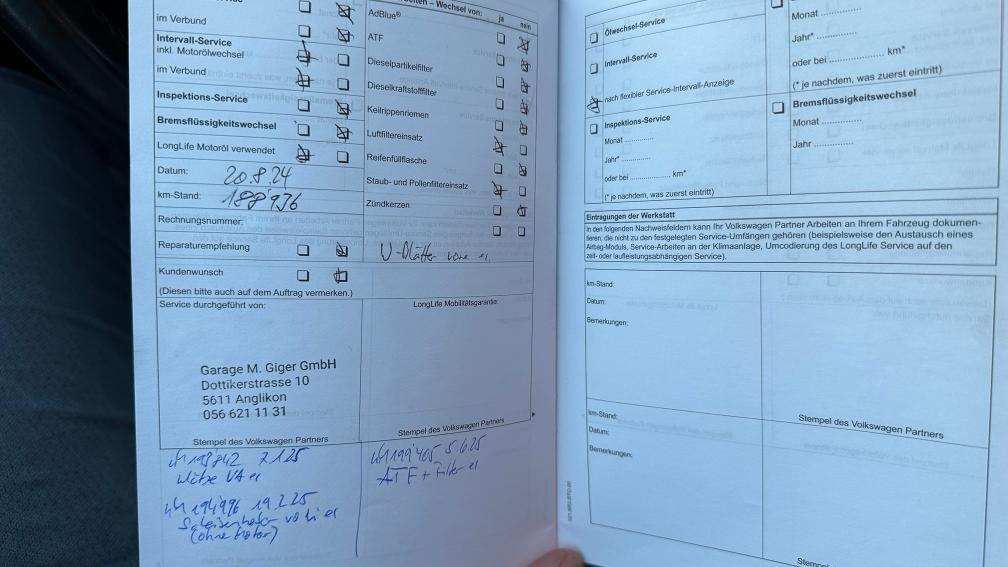 im Verbund
Intervall-Service
inkl. Motorölwechsel
im Verbund
Inspektions-Service
Bremsflüssigkeitswechsel
LongLife Motoröl verwendet
Datum: 20.8.24
km-Stand: 188'936
Rechnungsnummer:
Reparaturempfehlung
Kundenwunsch
(Diesen bitte auch auf dem Auftrag vermerken.)
Service durchgeführt von:
Garage M. Giger GmbH
Dottikerstrasse 10
5611 Anglikon
056 621 11 31
Stempel des Volkswagen Partners
7.1.25
VA er
194'996 19.2.25
(ohne Motor)
Wechsel von: ja nein
AdBlue®
ATF
Dieselpartikelfilter
Dieselkraftstofffilter
Keilrippenriemen
Luftfiltereinsatz
Reifenfüllflasche
Staub- und Pollenfiltereinsatz
Zündkerzen
LongLife Mobilitätsgarantie:
Stempel des Volkswagen Partners
199'405 5.6.25
ATF + Filter er
Ölwechsel-Service
Intervall-Service
nach flexibler Service-Intervall-Anzeige
Inspektions-Service
Monat ............
Jahr* ............
oder bei ................ km*
(* je nachdem, was zuerst eintritt)
Monat ............
Jahr* ............
oder bei ................ km*
(* je nachdem, was zuerst eintritt)
Bremsflüssigkeitswechsel
Monat ............
Jahr ............
Eintragungen der Werkstatt
In den folgenden Nachweisfeldern kann Ihr Volkswagen Partner Arbeiten an Ihrem Fahrzeug dokumen-
tieren, die nicht zu den festgelegten Service-Umfängen gehören (beispielsweise den Austausch eines
Airbag-Moduls, Service-Arbeiten an der Klimaanlage, Umcodierung des LongLife Service auf den
zeit- oder laufleistungsabhängigen Service).
km-Stand:
Datum:
Bemerkungen:
Stempel des Volkswagen Partners
km-Stand:
Datum:
Bemerkungen: